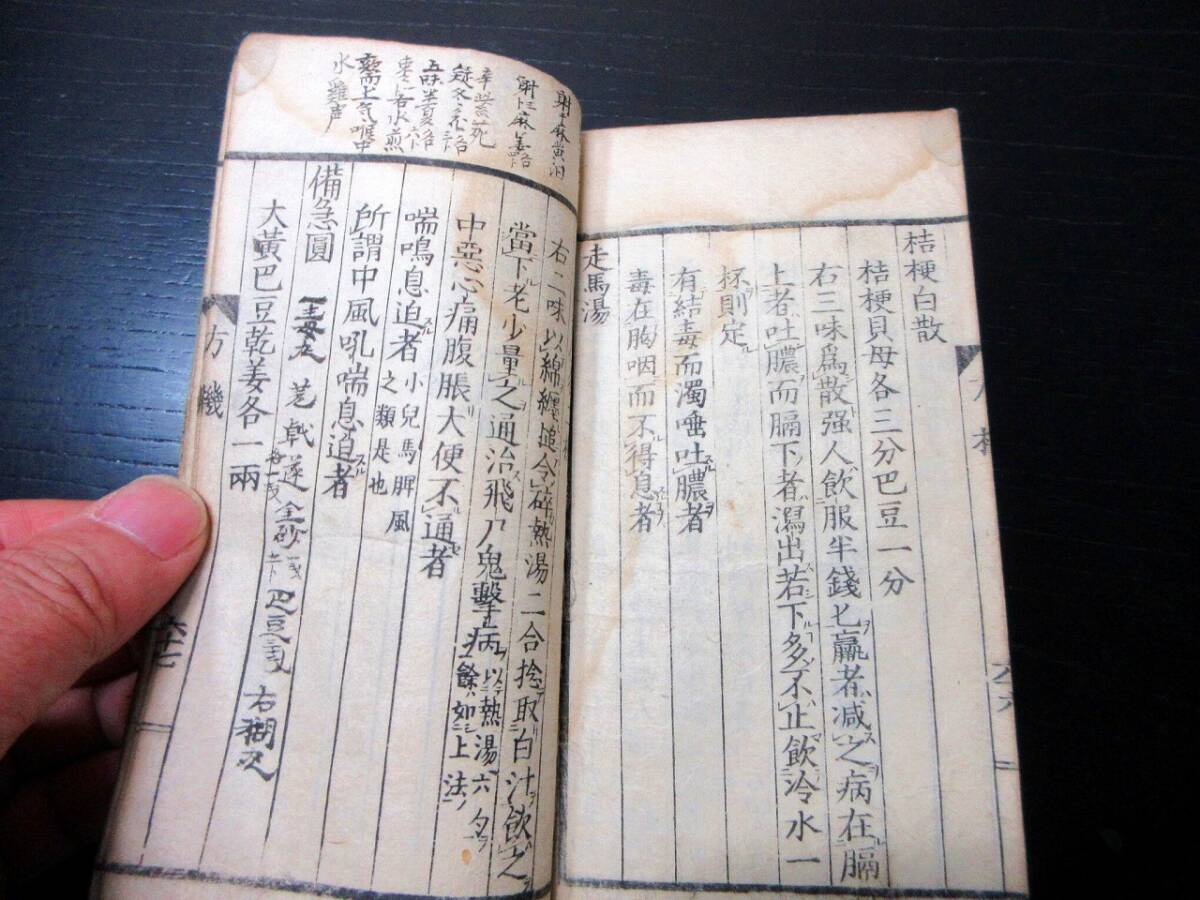 桔梗白散
桔梗貝母各三分巴豆一分
右三味爲散强人飲服半錢匕羸者減之病在膈
上者吐膿而膈下者瀉出若下多不止飲冷水一
杯則定
有結毒而濁唾吐膿者
毒在胸咽而不得息者
走馬湯
六十六
射干麻黄湯
射干 麻 姜
辛 紫 死
五味 半夏
棗 右水煎
欬而上气喉中
水雞声
右二味以綿纏搥令碎熱湯二合捻取白汁飲之
當下老少量之通治飛尸鬼擊病以熱湯六夕
餘如上法
中惡心痛腹脹大便不通者
喘鳴息迫者小兒馬脾風
之類是也
所謂中風吼喘息迫者
備急圓
大黃巴豆乾姜各一兩
右糊丸
方機
六十七